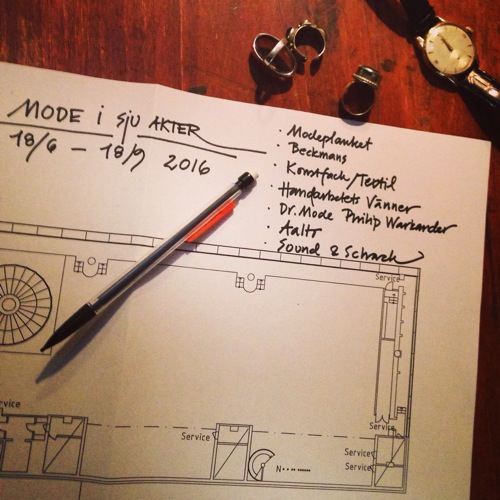 MODE i SJU AKTER
18/6 – 18/9 2016
· Modeplanket
· Beckmans
· Konstfack/Textil
· Handarbetets Vänner
· Dr. Mode Philip Warkander
· Aalto
· Sound & Schack
Service
Service
Service
Service
Service
Service